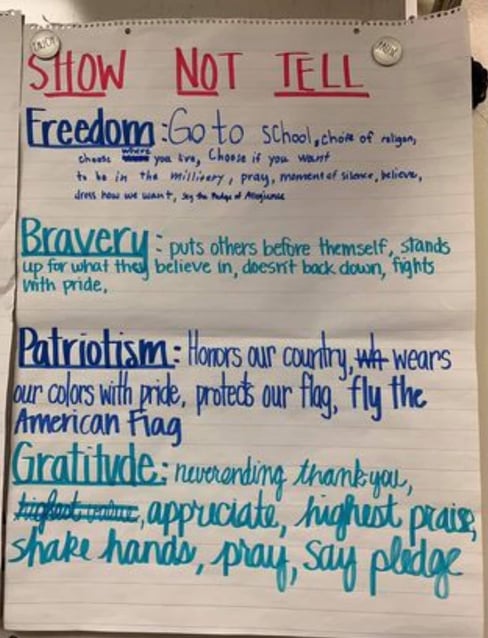 SHOW NOT TELL
Freedom: Go to school, choice of religon,
choose where you live, Choose if you want
to be in the millitery, pray, moment of silence, believe,
dress how we want, say the Pledge of Allegiance
Bravery: puts others before themself, stands
up for what they believe in, doesn't back down, fights
with pride,
Patriotism: Honors our country, wears
our colors with pride, protects our flag, fly the
American Flag
Gratitude: neverending thank you,
highest praise, appriciate, highest praise,
shake hands, pray, say pledge